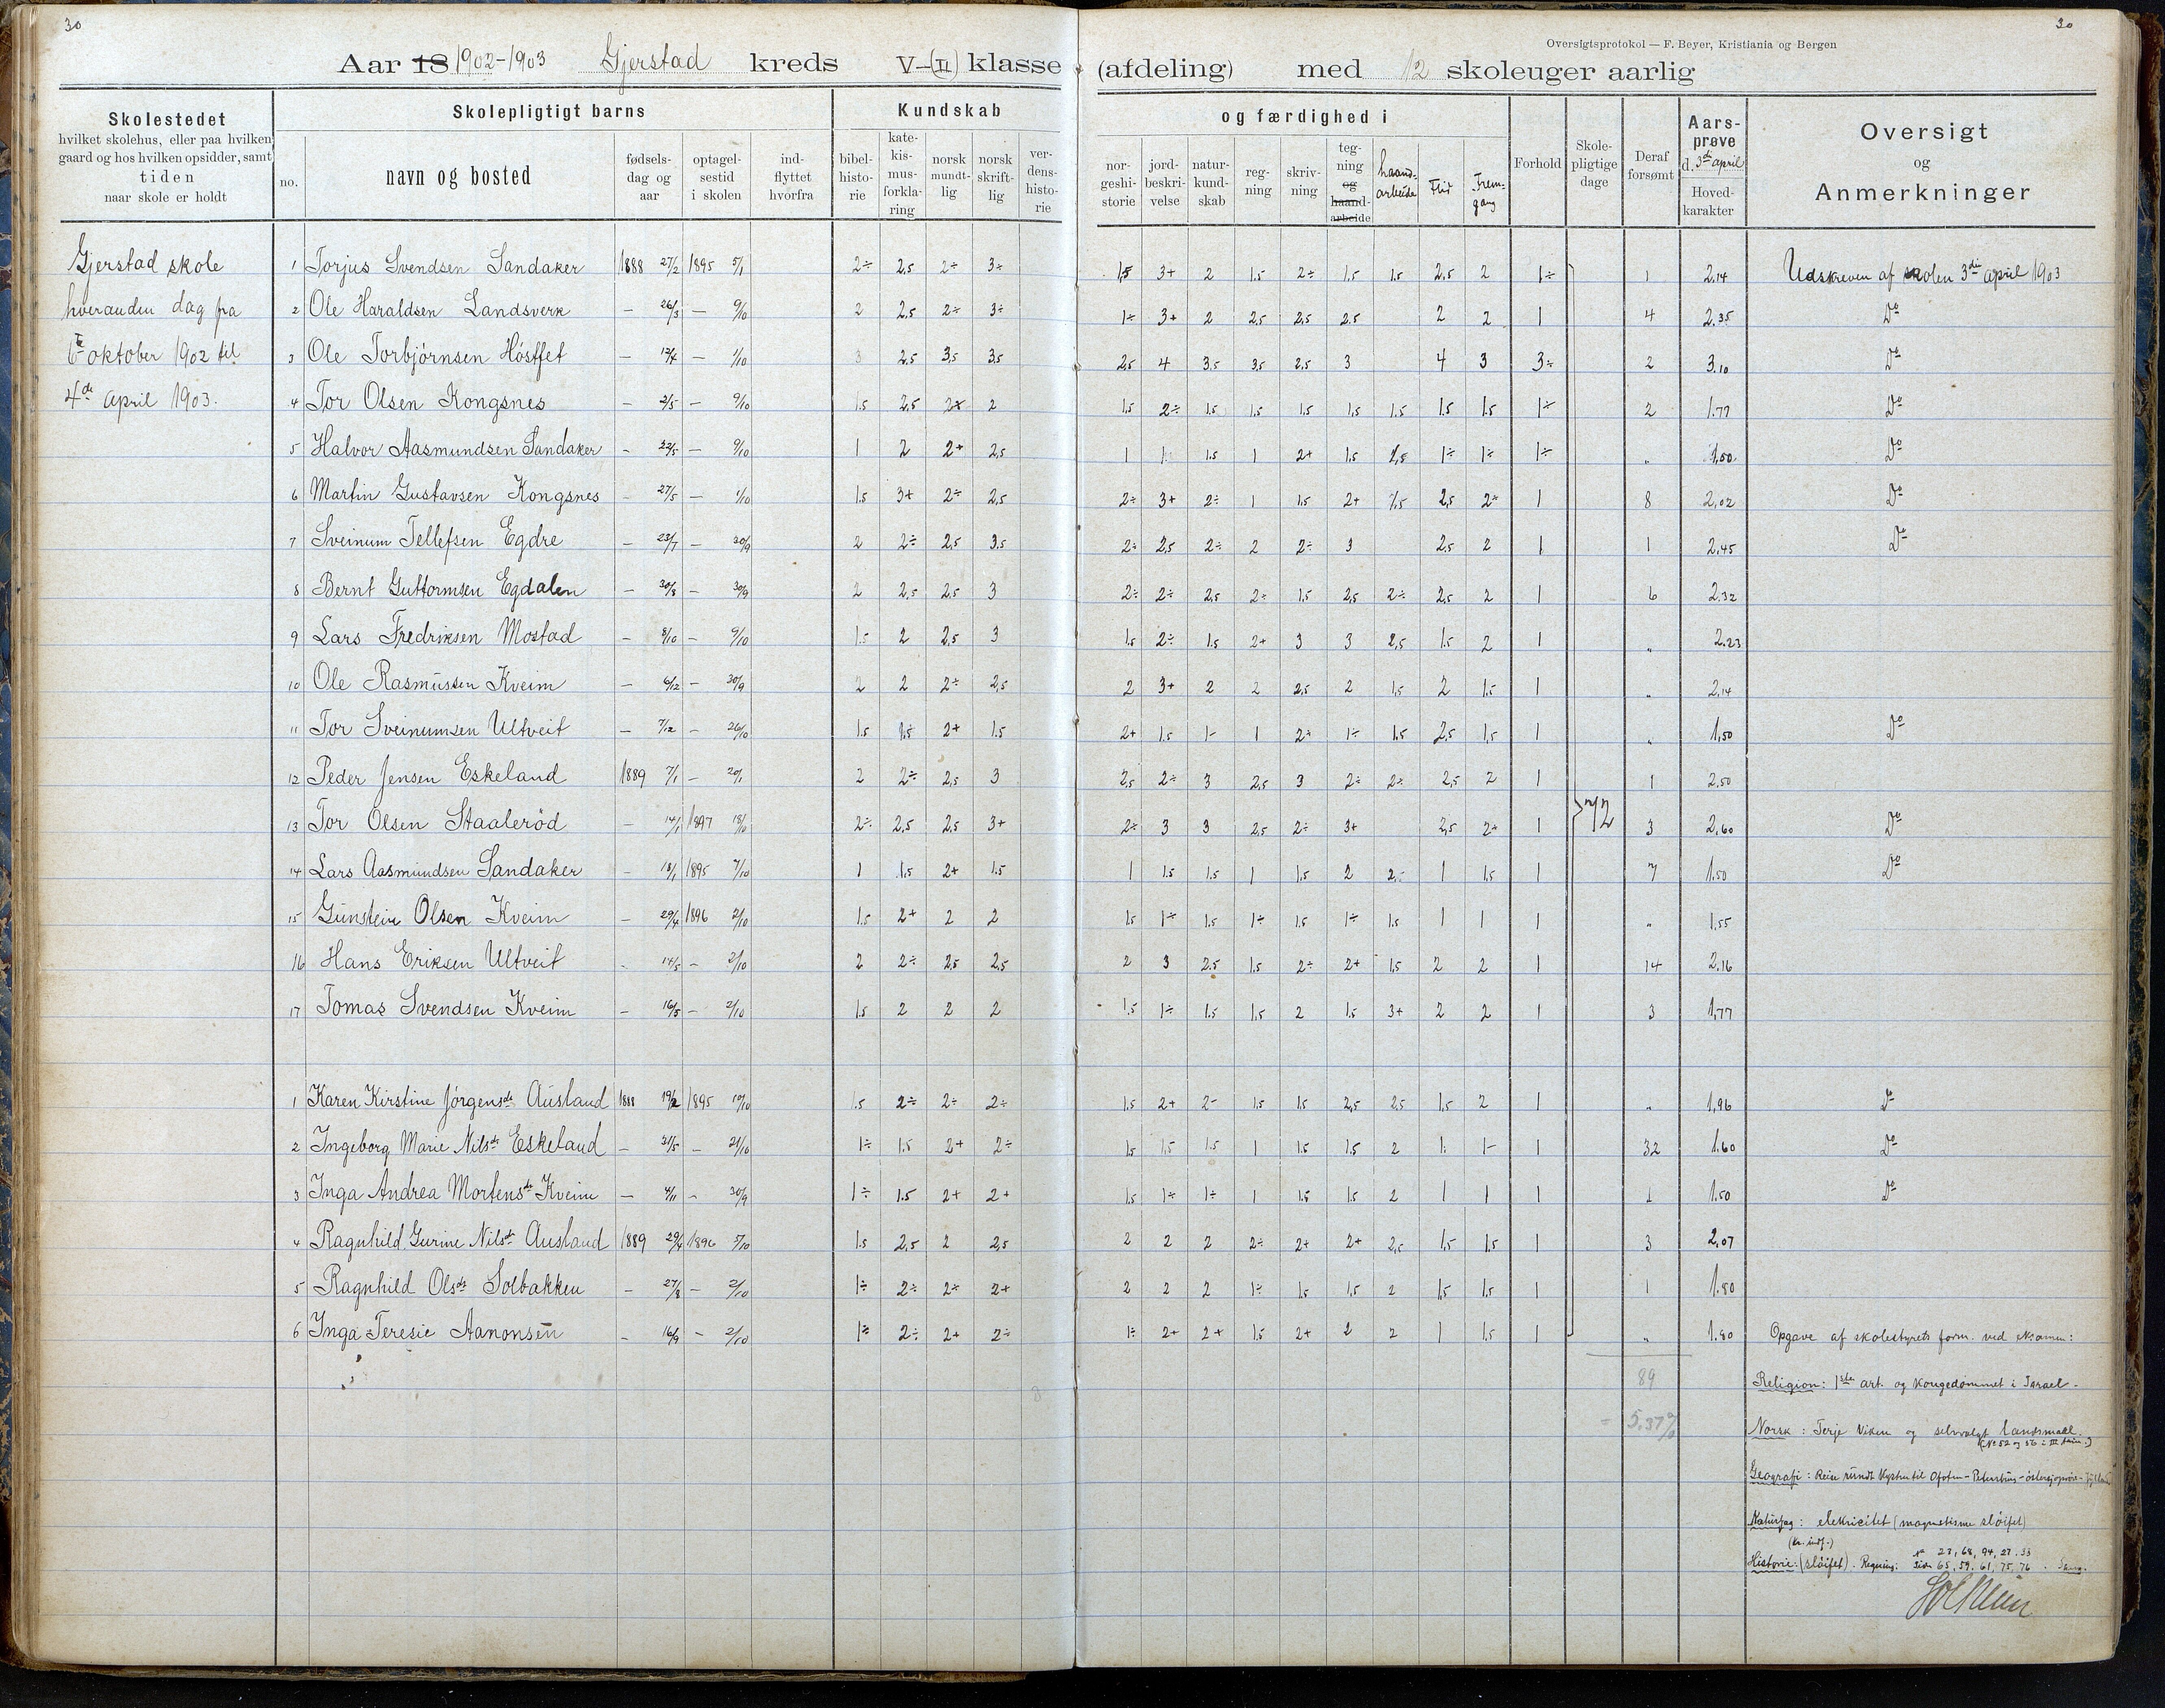 30
30
Oversigtsprotokol — F. Beyer, Kristiania og Bergen
Aar 18 1902-1903 Gjerstad kreds V-(II) klasse (afdeling) med 12 skoleuger aarlig
Skolestedet
hvilket skolehus, eller paa hvilken
gaard og hos hvilken opsidder, samt
tiden
naar skole er holdt
Skolepligtigt barns
no.
navn og bosted
fødsels-
dag og
aar
optagel-
sestid
i skolen
ind-
flyttet
hvorfra
Kundskab
bibel-
histo-
rie
kate-
kis-
mus-
forkla-
ring
norsk
mundt-
lig
norsk
skrift-
lig
ver-
dens-
histo-
rie
og færdighed i
nor-
geshi-
storie
jord-
beskri-
velse
natur-
kund-
skab
reg-
ning
skriv-
ning
teg-
ning
og
haand-
arbeide
haand-
arbeide
Flid
Frem-
gang
Forhold
Skole-
pligtige
dage
Deraf
forsømt
Aars-
prøve
d. 3di april
Hoved-
karakter
Oversigt
og
Anmerkninger
Gjerstad skole
hveranden dag fra
oktober 1902 til
4de april 1903.
1 Torjus Svendsen Sandaker 1888 27/2 1895 5/1 2÷ 2,5 2÷ 3÷ 1,5 3+ 2 1.5 2÷ 1.5 1.5 2,5 2 1÷ 1 2,14 Udskreven af skolen 3di april 1903
2 Ole Haraldsen Landsverk — 26/3 — 9/10 2 2,5 2÷ 3÷ 1÷ 3+ 2 2,5 2,5 2,5 2 2 1 4 2.35 Do
3 Ole Torbjörnsen Hösffet — 17/4 — 1/10 3 2.5 3,5 3,5 2,5 4 3.5 3,5 2.5 3 4 3 3÷ 2 3.10 Do
4 Tor Olsen Kongsnes — 2/5 — 9/10 1.5 2,5 2 1,5 2÷ 1.5 1.5 1.5 1.5 1.5 1.5 1.5 1÷ 2 1.77 Do
5 Halvor Aasmundsen Sandaker - 22/5 - 9/10 1 2 2+ 2,5 1 1 1.5 1 2+ 1.5 2,5 1÷ 1÷ 1÷ „ 1,50 Do
6 Martin Gustavsen Kongsnes - 27/5 — 1/10 1.5 3+ 2÷ 2,5 2÷ 3+ 2÷ 1 1.5 2+ 1,5 2,5 2+ 1 8 2,02 Do
7 Sveinum Tellefsen Egdre — 23/7 — 30/9 2 2÷ 2,5 3.5 2÷ 2,5 2÷ 2 2÷ 3 2,5 2 1 1 2,45 Do
8 Bernt Guttormsen Egdalen — 30/8 — 30/9 2 2,5 2,5 3 2÷ 2÷ 2,5 2÷ 1.5 2,5 2÷ 2,5 2 1 6 2.32
9 Lars Fredriksen Mostad — 8/10 — 9/10 1.5 2 2,5 3 1.5 2÷ 1.5 2+ 3 3 2,5 1.5 2 1 „ 2.23
10 Ole Rasmussen Kveim — 6/12 — 30/9 2 2 2÷ 2,5 2 3+ 2 2 2,5 2 1,5 2 1.5 1 „ 2,14
11 Tor Sveinumsen Ultveit — 7/12 — 26/10 1.5 1,5 2+ 1.5 2+ 1.5 1- 1 2+ 1÷ 1.5 2,5 1,5 1 „ 1,50 Do
12 Peder Jensen Eskeland 1889 7/1 — 20/1 2 2÷ 2,5 3 2,5 2÷ 3 2,5 3 2÷ 2÷ 2,5 2 1 1 2,50
72
13 Tor Olsen Staaleröd — 14/1 1897 18/10 2÷ 2,5 2,5 3+ 2÷ 3 3 2,5 2÷ 3+ 2,5 2+ 1 3 2,60 Do
14 Lars Aasmundsen Sandaker — 18/1 1895 7/10 1 1,5 2+ 1.5 1 1.5 1,5 1 1,5 2 2÷ 1 1,5 1 7 1.50 Do
15 Gunstein Olsen Kveim — 29/4 1896 2/10 1.5 2+ 2 2 1.5 1÷ 1.5 1÷ 1.5 1÷ 1.5 1 1 1 „ 1,55
16 Hans Eriksen Ultveit - 14/5 - 2/10 2 2÷ 2,5 2,5 2 3 2.5 1.5 2÷ 2+ 1,5 2 2 1 14 2.16
17 Tomas Svendsen Kveim — 16/5 — 2/10 1.5 2 2 2 1.5 1÷ 1.5 1.5 2 1.5 3+ 2 2 1 3 1,77
1 Karen Kirstine Jörgensdr Ausland 1888 19/2 1895 10/10 1.5 2÷ 2÷ 2÷ 1.5 2+ 2- 1.5 1.5 2,5 2,5 1,5 2 1 „ 1,96 Do
2 Ingeborg Marie Nilsdr Eskeland — 31/5 — 21/10 1÷ 1.5 2+ 2÷ 1.5 1,5 1.5 1 1.5 1.5 2 1. 1- 1 32 1.60 Do
3 Inga Andrea Mortensdr Kveim — 4/11 — 30/9 1÷ 1.5 2+ 2+ 1.5 1÷ 1÷ 1 1.5 1.5 2 1 1 1 1 1.50 Do
4 Ragnhild Gurine Nilsdr Ausland 1889 29/4 1896 5/10 1.5 2,5 2 2,5 2 2 2 2÷ 2+ 2+ 2,5 1,5 1,5 1 3 2,07
5 Ragnhild Olsdr Solbakken — 27/8 — 2/10 1÷ 2÷ 2÷ 2+ 2 2 2 1÷ 1,5 1,5 2 1,5 1.5 1 1 1.80
6 Inga Teresie Aanonsen — 16/9 — 2/10 1÷ 2÷ 2+ 2÷ 1÷ 2+ 2+ 1.5 2+ 2 2 1 1.5 1 „ 1.80
Opgave af skolestyrets form. ved eksamen:
89
Religion: 1ste art. og kongedømmet i Israel.
= 5.37%
Norsk: Terje Viken og selvvalgt landsmaal.
(No 52 og 56 i III )
Geografi: Reise rundt kysten til Ofoten - Petersburg -
Naturfag: elektricitet (magnetisme sløifet)
Historie: (sløifet). Regning: No 23, 68, 94, 27, 33
Side 65, 59, 61, 75, 76.